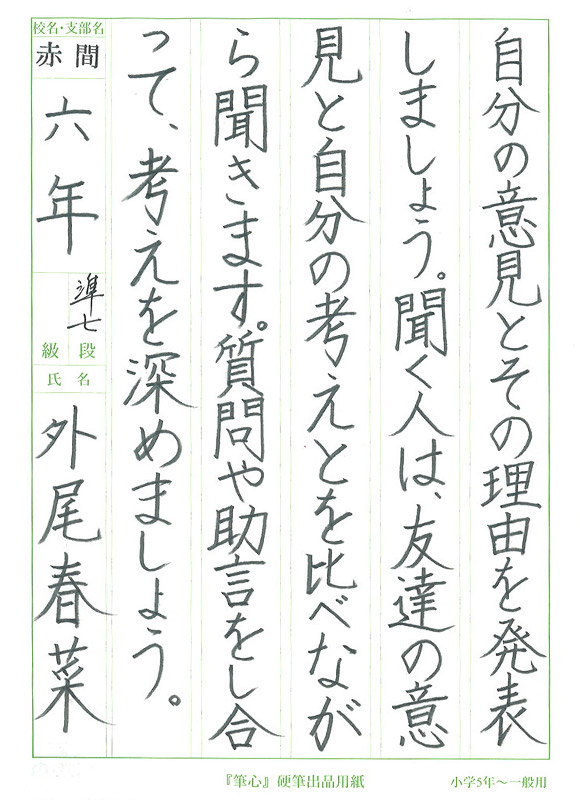 自分の意見とその理由を発表
しましょう。聞く人は、友達の意
見と自分の考えとを比べなが
ら聞きます。質問や助言をし合
って、考えを深めましょう。
校名・支部名
赤間
六年
準七
段級
氏名
外尾春菜
『筆心』硬筆出品用紙
小学5年〜一般用